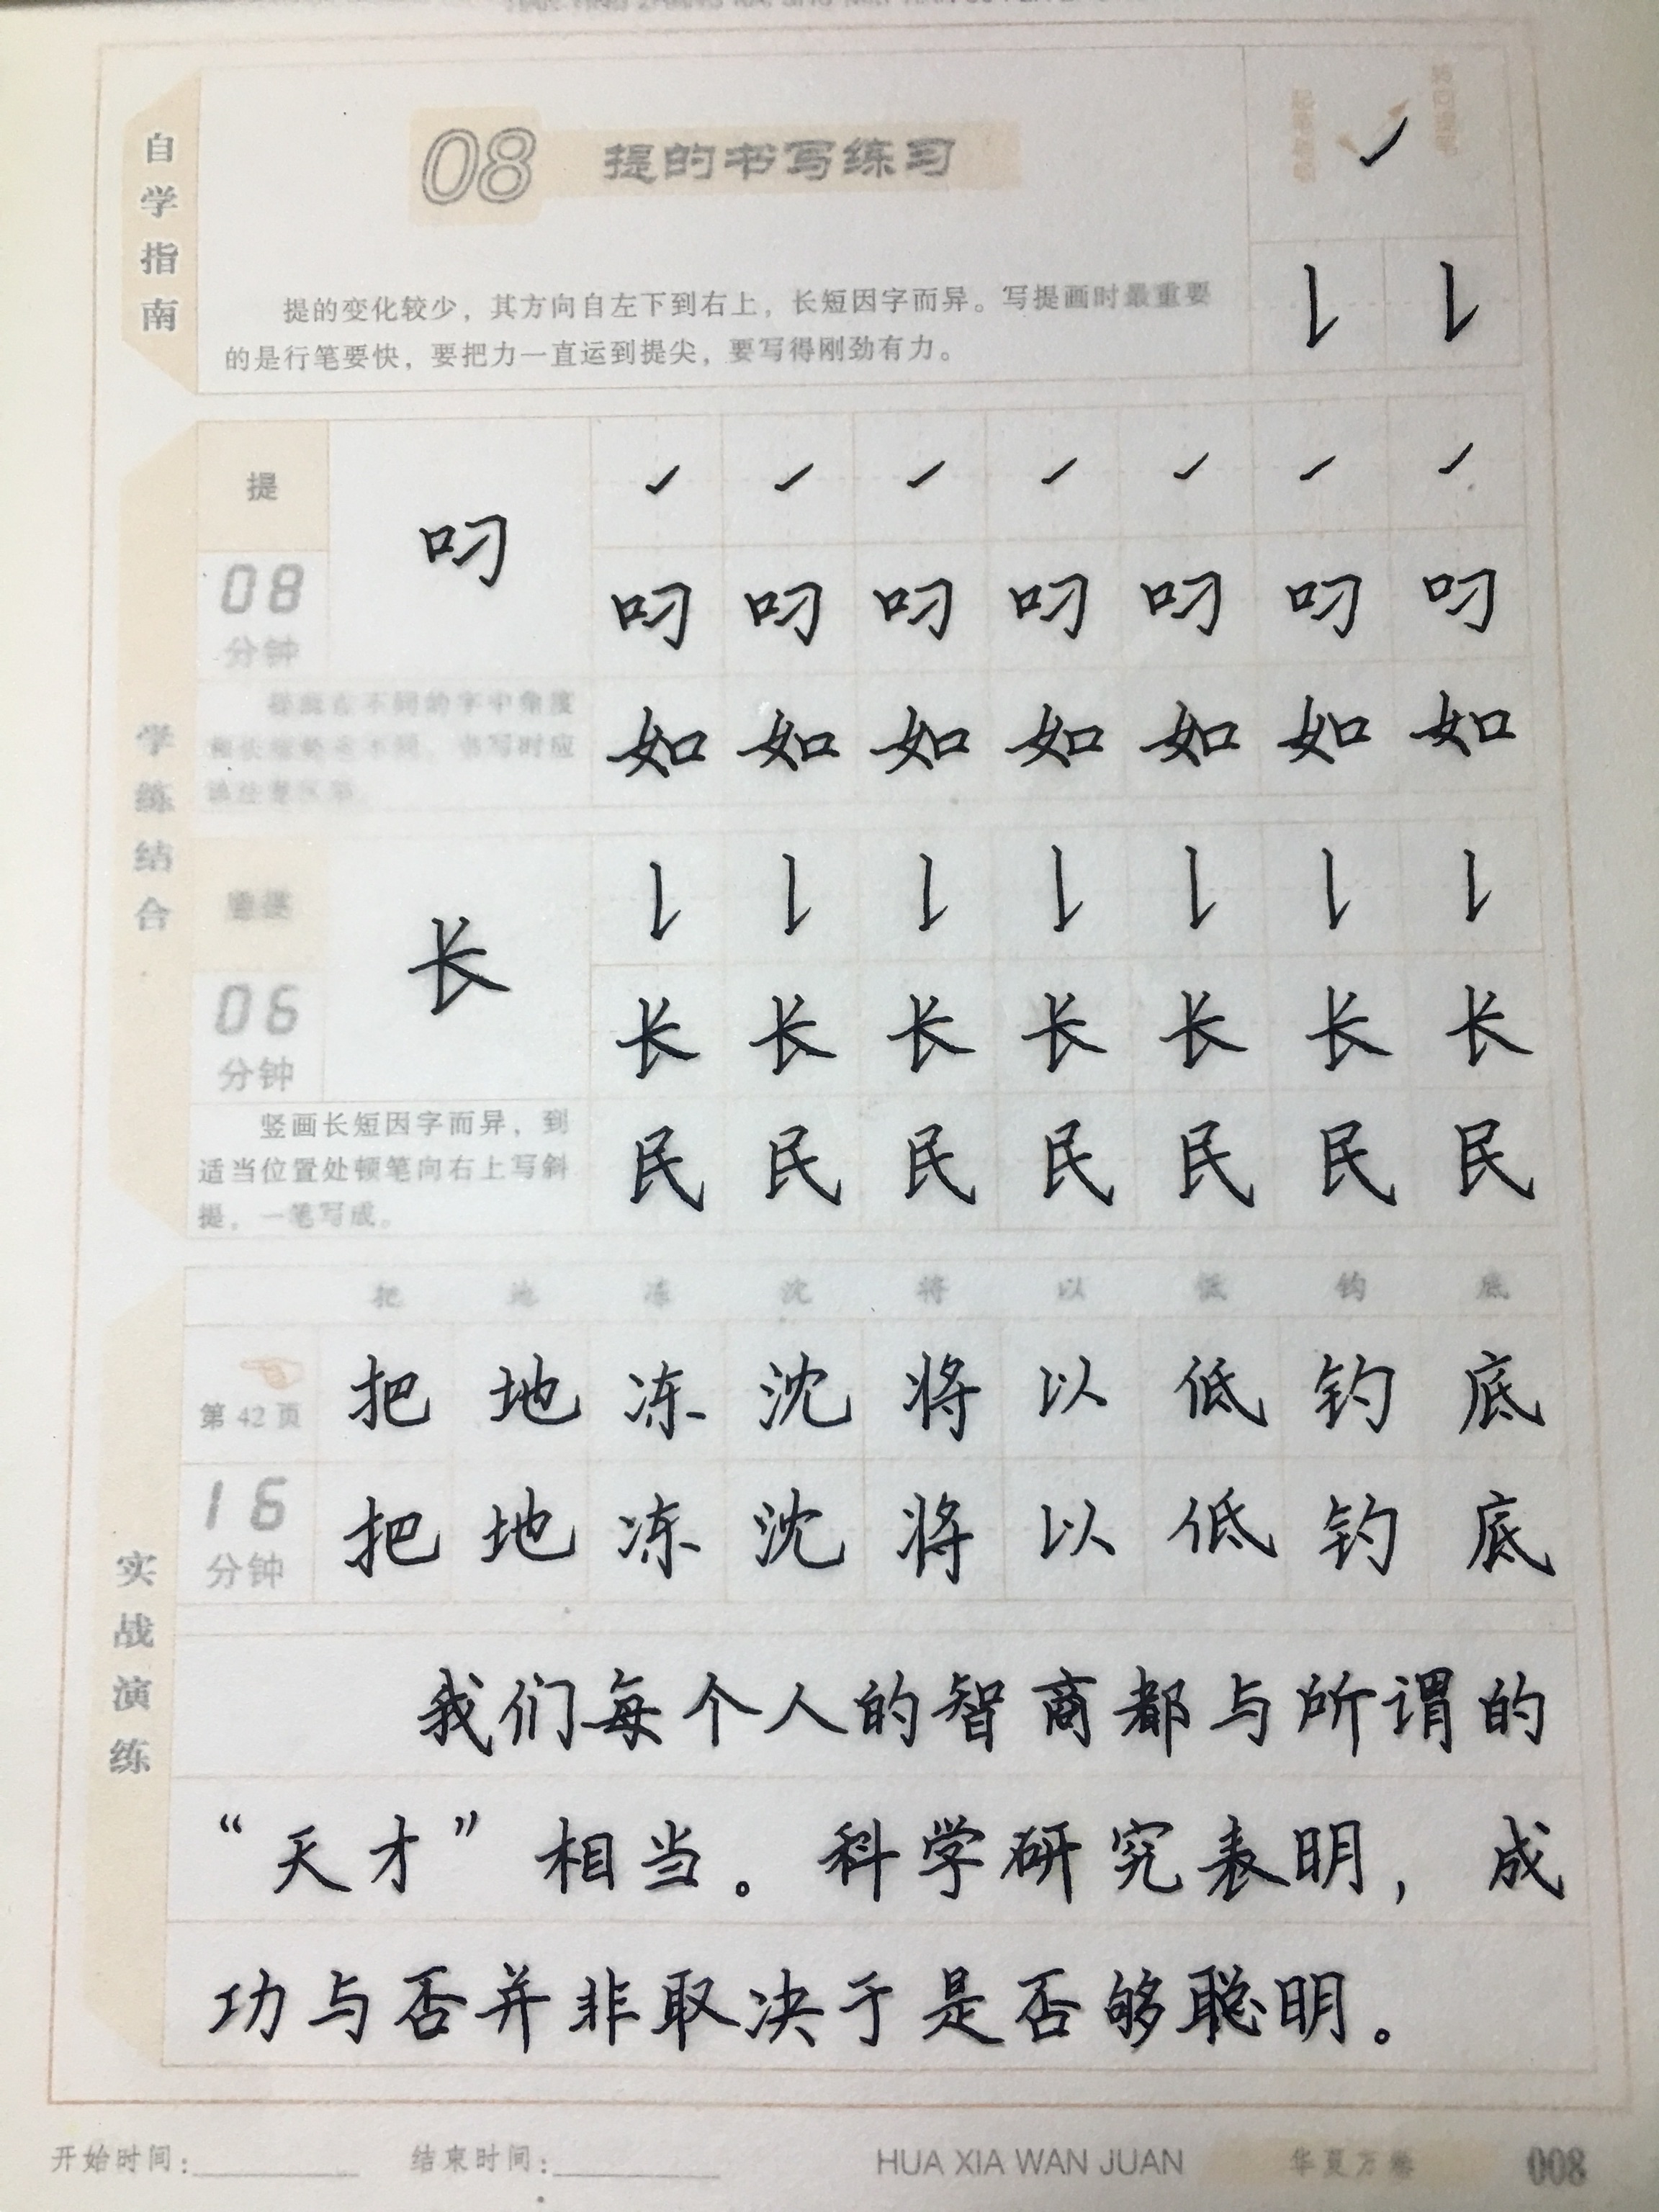 自学指南
08 提的书写练习
提的变化较少，其方向自左下到右上，长短因字而异。写提画时最重要
的是行笔要快，要把力一直运到提尖，要写得刚劲有力。
学练结合
提
08
分钟
叼
叼 叼 叼 叼 叼 叼 叼
如 如 如 如 如 如 如
不同的字中角度
不同，书写时应
06
分钟
长
长 长 长 长 长 长 长
民 民 民 民 民 民 民
竖画长短因字而异，到
适当位置处顿笔向右上写斜
提，一笔写成。
实战演练
把 地 冻 沈 将 以 低 钓 底
第42页
16
分钟
把 地 冻 沈 将 以 低 钓 底
把 地 冻 沈 将 以 低 钓 底
我们每个人的智商都与所谓的
“天才”相当。科学研究表明，成
功与否并非取决于是否够聪明。
开始时间：
结束时间：
HUA XIA WAN JUAN
华夏万卷
008